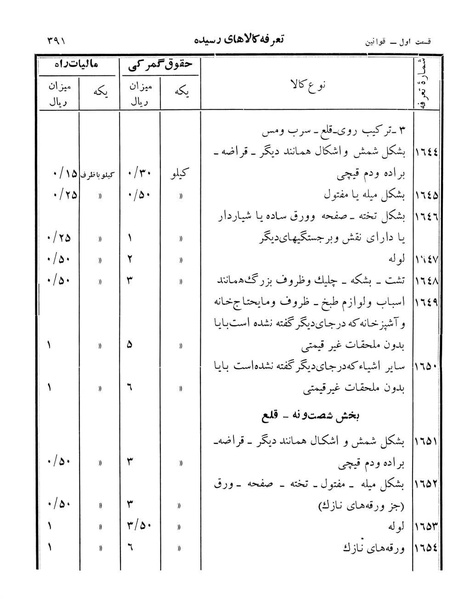 قسمت اول ــ قوانین تعرفه کالاهای رسیده ۳۹۱
شمارهٔ تعرفه نوع کالا حقوق گمرکی مالیات راه
یکه میزان ریال یکه میزان ریال
۳ ـ ترکیب روی ـ قلع ـ سرب ومس
۱۶۴۴ بشکل شمش و اشکال همانند دیگر ـ قراضه ـ
براده ودم قیچی کیلو ۰/۳۰ کیلو باظرف ۰/۱۵
۱۶۴۵ بشکل میله یا مفتول » ۰/۵۰ » ۰/۲۵
۱۶۴۶ بشکل تخته ـ صفحه وورق ساده یا شیاردار
یا دارای نقش وبرجستگیهای دیگر » ۱ » ۰/۲۵
۱۶۴۷ لوله » ۲ » ۰/۵۰
۱۶۴۸ تشت ـ بشکه ـ چلیك وظروف بزرگ همانند » ۳ » ۰/۵۰
۱۶۴۹ اسباب ولوازم طبخ ـ ظروف ومایحتاج خانه
وآشپزخانه که درجای دیگر گفته نشده است با یا
بدون ملحقات غیر قیمتی » ۵ » ۱
۱۶۵۰ سایر اشیاء که درجای دیگر گفته نشده است با یا
بدون ملحقات غیر قیمتی » ۶ » ۱
بخش شصت و نه ـ قلع
۱۶۵۱ بشکل شمش و اشکال همانند دیگر ـ قراضه ـ
براده ودم قیچی » ۳ » ۰/۵۰
۱۶۵۲ بشکل میله ـ مفتول ـ تخته ـ صفحه ـ ورق
(جز ورقه‌های نازك) » ۳ » ۰/۵۰
۱۶۵۳ لوله » ۳/۵۰ » ۱
۱۶۵٤ ورقه‌های نازك » ۶ » ۱